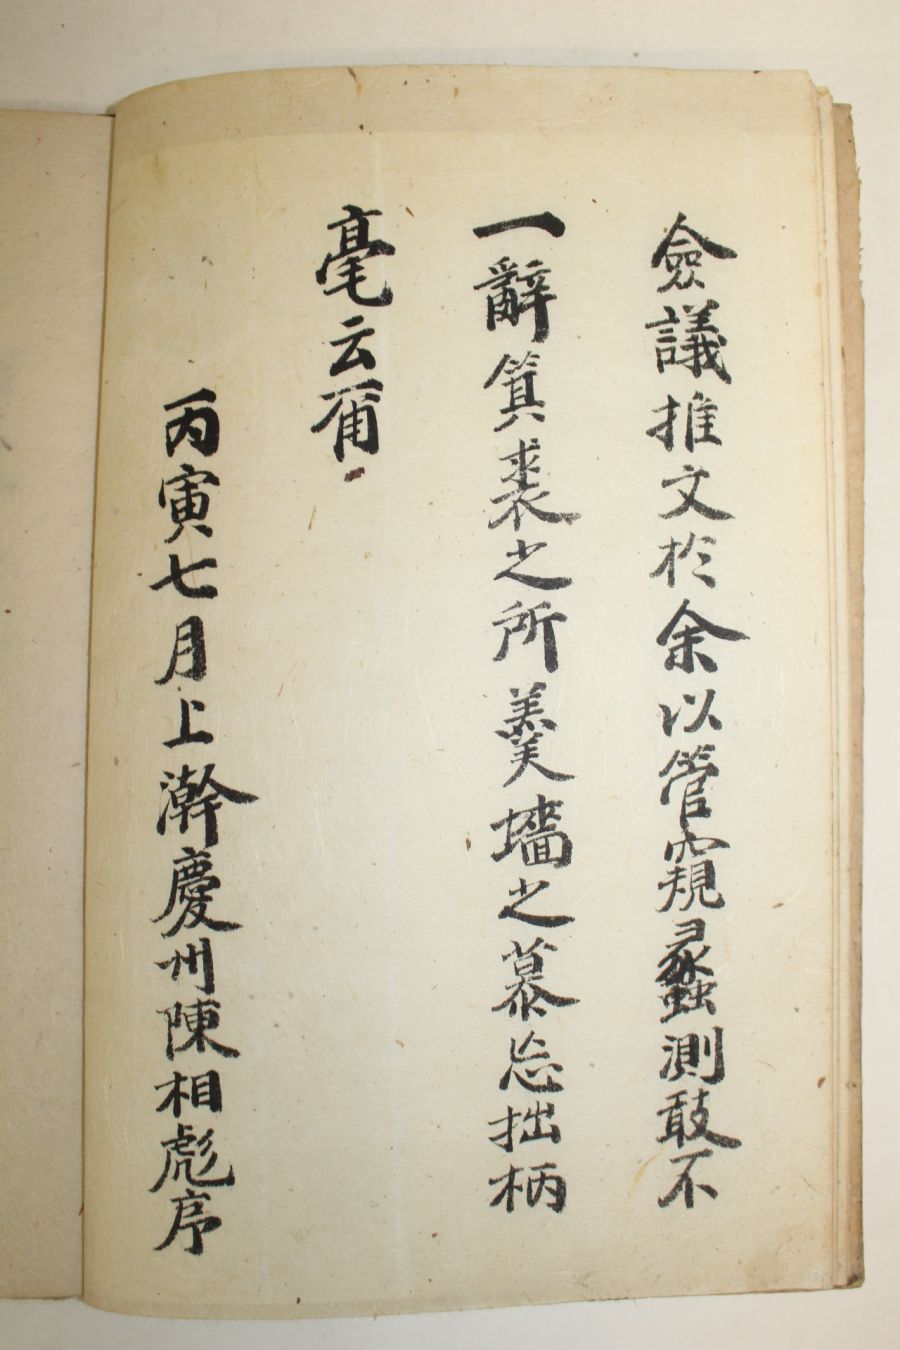 僉議推文於余以管窺蠡測敢不
一辭箕裘之所羹墻之慕忘拙柄
毫云爾
丙寅七月上澣慶州陳相彪序